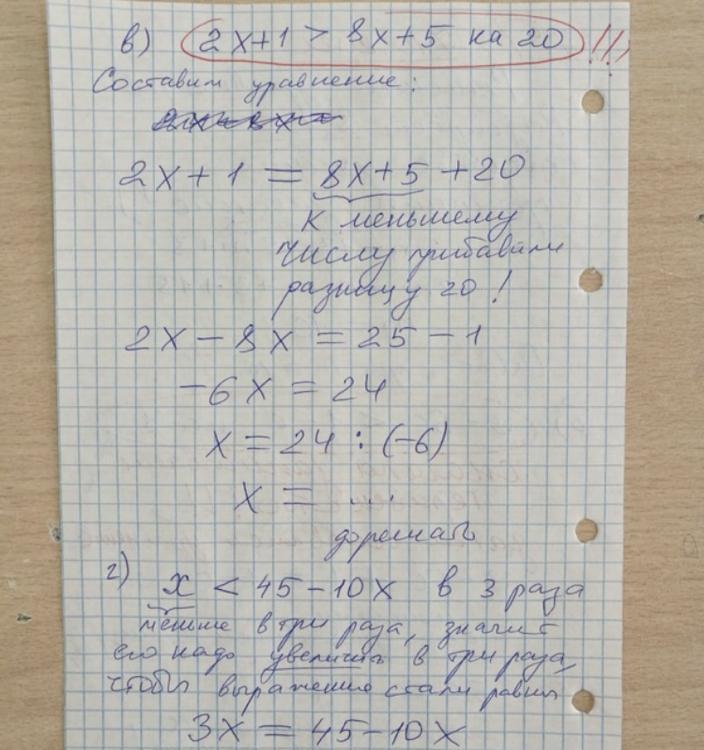 в) 2x+1 > 8x+5 на 20 !!!
Составим уравнение:
2x+1 = 8x+5 +20
к меньшему
числу прибавили
разницу 20!
2x-8x = 25-1
-6x = 24
x = 24 : (-6)
x = ...
дорешать
г) x < 45-10x в 3 раза
меньше в три раза, значит
его надо увеличить в три раза,
чтобы выражение стали равны
3x = 45-10x